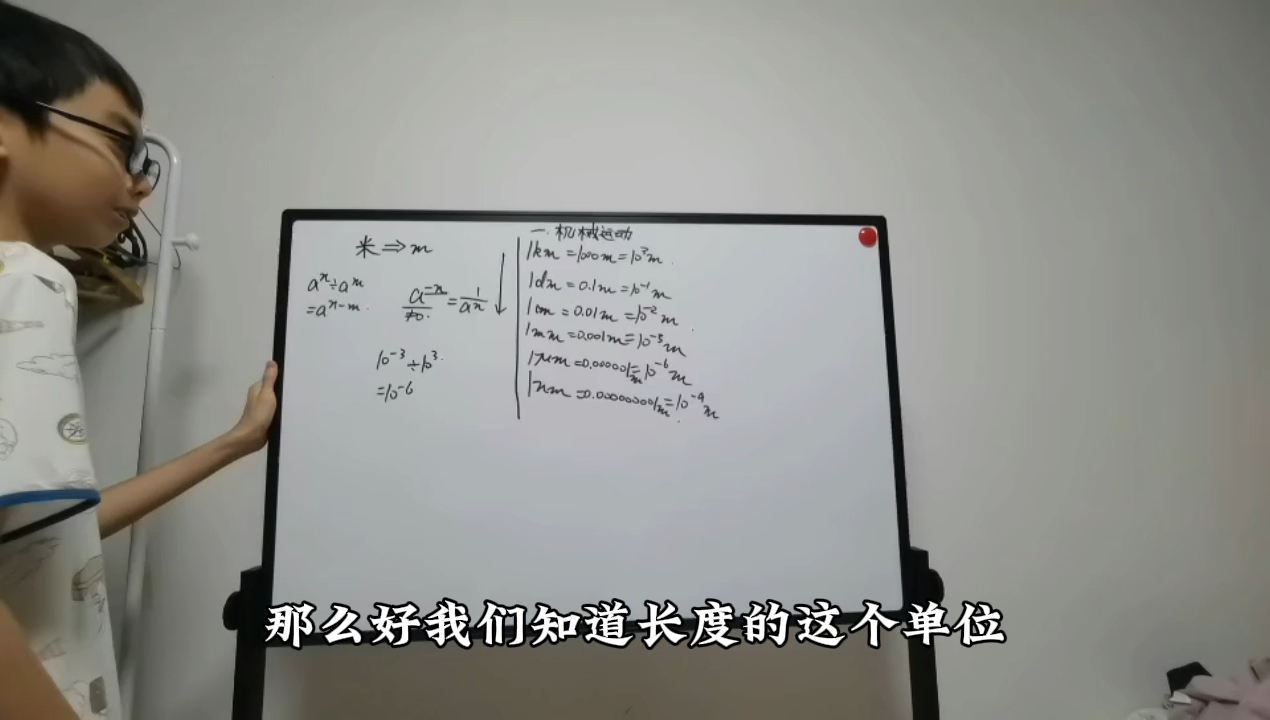 米⇒m
aⁿ÷aᵐ
=aⁿ⁻ᵐ
a⁻ⁿ=1/aⁿ
≠0.
10⁻³÷10³
=10⁻⁶
一.机械运动
1km=1000m=10³m
1dm=0.1m=10⁻¹m
1cm=0.01m=10⁻²m
1mm=0.001m=10⁻³m
1μm=0.000001m=10⁻⁶m
1nm=0.000000001m=10⁻⁹m
那么好我们知道长度的这个单位